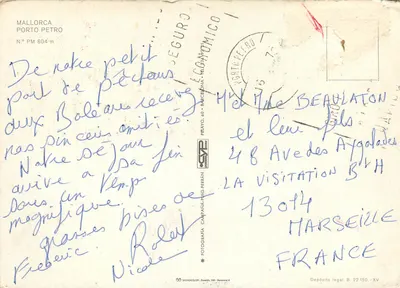 MALLORCA
PORTO PETRO
N.º PM 604
SEGURO
ECONOMICO
De notre petit
port de pêcheurs
aux Baléares recevez
nos sincères amitiés.
Notre séjour
arrive à sa fin
sous un temps
magnifique.
grosses bises de
Frédéric
Nicole
M et Mme BEAULATON
et leur fils
48 Ave des Aygalades
LA VISITATION Bt H
13014
MARSEILLE
FRANCE